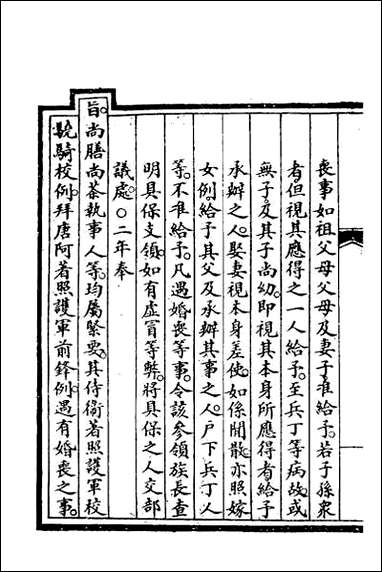 喪事如祖父母父母及妻子准給予。若子孫衆
者但視其應得之一人給予。至兵丁等病故或
無子及其子尚幼。即視其本身所應得者給予
承辦之人。娶妻視本身差使。如係閒散亦照嫁
女例。給予其父及承辦其事之人。戶下兵丁人
等。不准給予。凡遇婚喪等事。令該參領族長查
明具保支領。如有虛冒等弊。將具保之人交部
議處。○二年奉
旨。尚膳尚茶執事人等。均屬緊要。其侍衛著照護軍校
驍騎校例。拜唐阿著照護軍前鋒例。遇有婚喪之事。